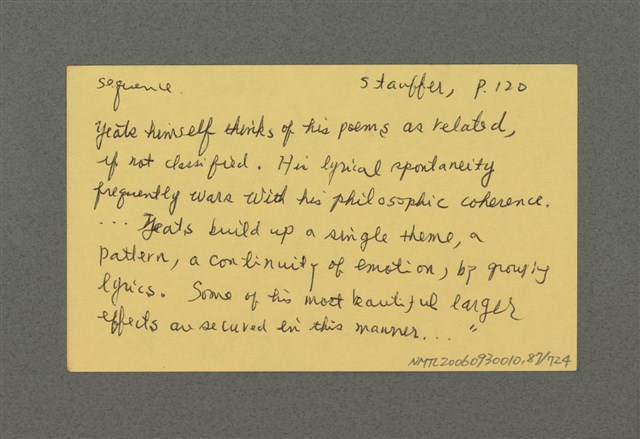 sequence. Stauffer, P. 120
Yeats himself thinks of his poems as related,
if not classified. His lyrical spontaneity
frequently wars with his philosophic coherence.
... Yeats build up a single theme, a
pattern, a continuity of emotion, by grouping
lyrics. Some of his most beautiful larger
effects are secured in this manner... "
NMTL20060930010.87/724